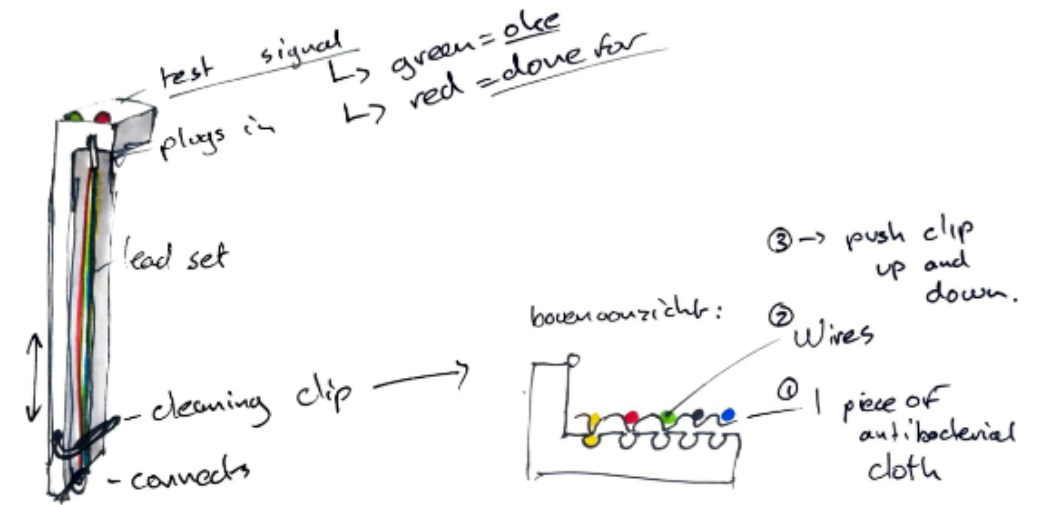 test signal
↳ green = oke
↳ red = done for
plugs in
lead set
cleaning clip →
- connects
bovenaanzicht:
③ → push clip
up and
down.
② Wires
① 1 piece of
antibacterial
cloth